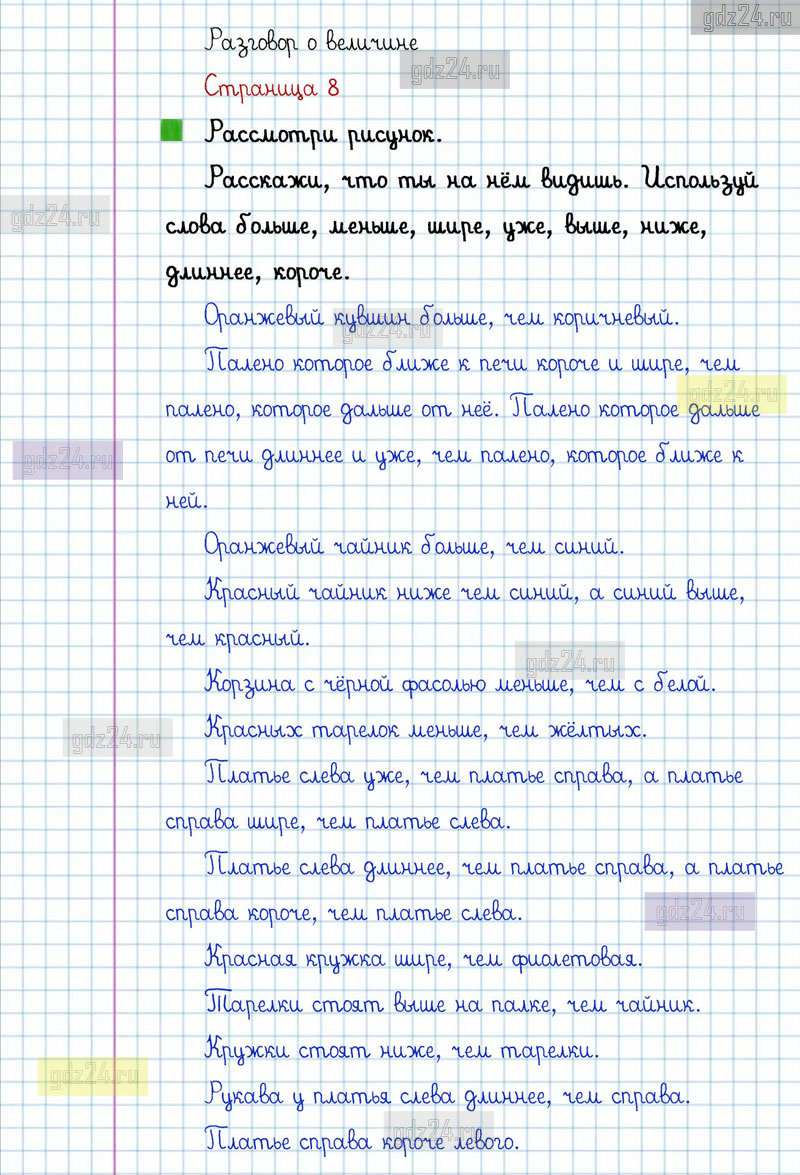 gdz24.ru
Разговор о величине
gdz24.ru
Страница 8
Рассмотри рисунок.
Расскажи, что ты на нём видишь. Используй
gdz24.ru
слова больше, меньше, шире, уже, выше, ниже,
длиннее, короче.
Оранжевый кувшин больше, чем коричневый.
gdz24.ru
Палено которое ближе к печи короче и шире, чем
gdz24.ru
палено, которое дальше от неё. Палено которое дальше
от печи длиннее и уже, чем палено, которое ближе к
gdz24.ru
ней.
Оранжевый чайник больше, чем синий.
Красный чайник ниже чем синий, а синий выше,
чем красный.
gdz24.ru
Корзина с чёрной фасолью меньше, чем с белой.
Красных тарелок меньше, чем жёлтых.
gdz24.ru
Платье слева уже, чем платье справа, а платье
справа шире, чем платье слева.
Платье слева длиннее, чем платье справа, а платье
справа короче, чем платье слева.
gdz24.ru
Красная кружка шире, чем фиолетовая.
Тарелки стоят выше на палке, чем чайник.
Кружки стоят ниже, чем тарелки.
gdz24.ru
Рукава у платья слева длиннее, чем справа.
gdz24.ru
Платье справа короче левого.